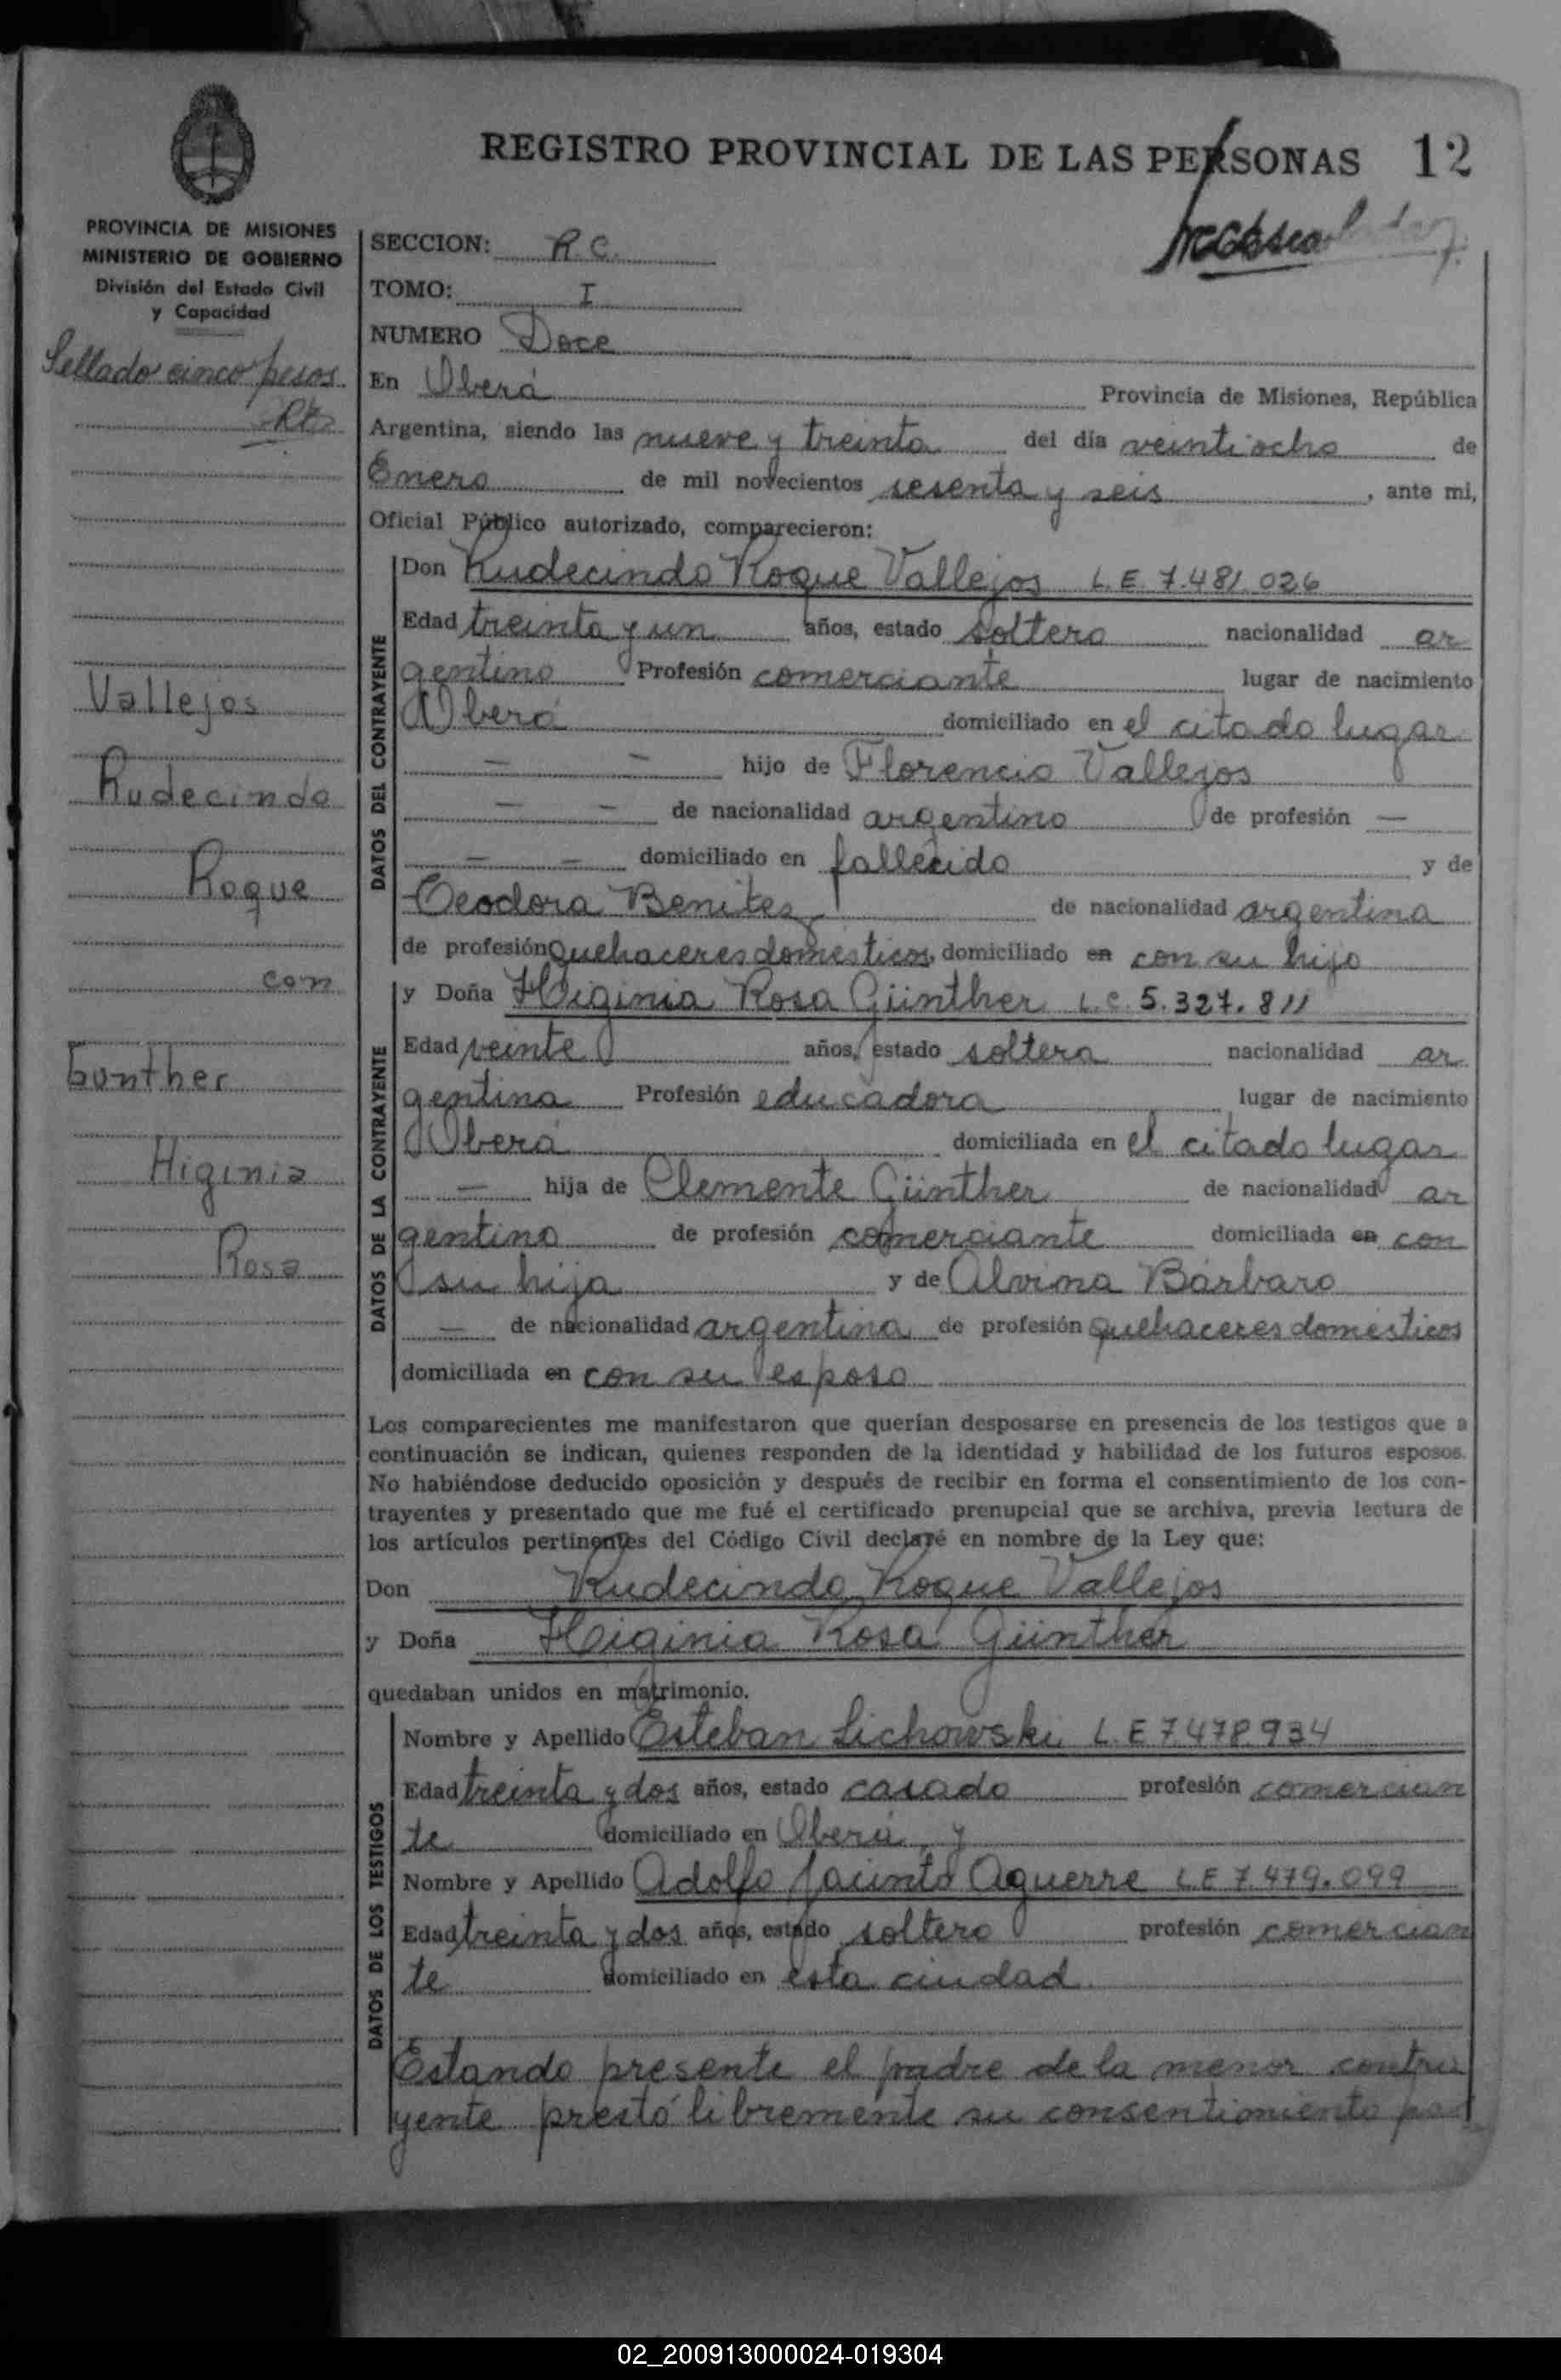 REGISTRO PROVINCIAL DE LAS PERSONAS 12
PROVINCIA DE MISIONES
MINISTERIO DE GOBIERNO
División del Estado Civil
y Capacidad
Sellado cinco pesos
Vallejos
Rudecindo
Roque
con
Gunther
Higinia
Rosa
SECCION: R.C.
TOMO: I
NUMERO Doce
En Oberá Provincia de Misiones, República
Argentina, siendo las nueve y treinta del día veintiocho de
Enero de mil novecientos sesenta y seis, ante mi,
Oficial Público autorizado, comparecieron:
DATOS DEL CONTRAYENTE
Don Rudecindo Roque Vallejos L.E. 7.481.026
Edad treinta y un años, estado soltero nacionalidad ar
gentino Profesión comerciante lugar de nacimiento
Oberá domiciliado en el citado lugar
— — hijo de Florencio Vallejos
— — de nacionalidad argentino de profesión —
— — domiciliado en fallecido y de
Teodora Benitez de nacionalidad argentina
de profesión quehaceres domésticos, domiciliado en con su hijo
DATOS DE LA CONTRAYENTE
y Doña Higinia Rosa Günther L.C. 5.327.811
Edad veinte años, estado soltera nacionalidad ar
gentina Profesión educadora lugar de nacimiento
Oberá domiciliada en el citado lugar
— hija de Clemente Günther de nacionalidad ar
gentino de profesión comerciante domiciliada en con
su hija y de Alvina Bárbaro
— de nacionalidad argentina de profesión quehaceres domésticos
domiciliada en con su esposo
Los comparecientes me manifestaron que querían desposarse en presencia de los testigos que a
continuación se indican, quienes responden de la identidad y habilidad de los futuros esposos.
No habiéndose deducido oposición y después de recibir en forma el consentimiento de los con-
trayentes y presentado que me fué el certificado prenupcial que se archiva, previa lectura de
los artículos pertinentes del Código Civil declaré en nombre de la Ley que:
Don Rudecindo Roque Vallejos
y Doña Higinia Rosa Günther
quedaban unidos en matrimonio.
DATOS DE LOS TESTIGOS
Nombre y Apellido Esteban Lichowski L.E 7.478.934
Edad treinta y dos años, estado casado profesión comercian
te domiciliado en Oberá, y
Nombre y Apellido Adolfo Jacinto Aguerre L.E 7.479.099
Edad treinta y dos años, estado soltero profesión comercian
te domiciliado en esta ciudad.
Estando presente el padre de la menor contra
yente prestó libremente su consentimiento
02_200913000024-019304